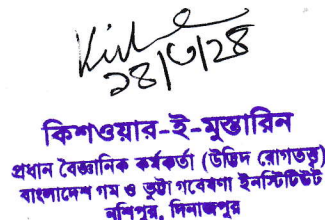 ১৪/৩/২৪
কিশওয়ার-ই-মুস্তারিন
প্রধান বৈজ্ঞানিক কর্মকর্তা (উদ্ভিদ রোগতত্ত্ব)
বাংলাদেশ গম ও ভুট্টা গবেষণা ইনস্টিটিউট
নশিপুর, দিনাজপুর